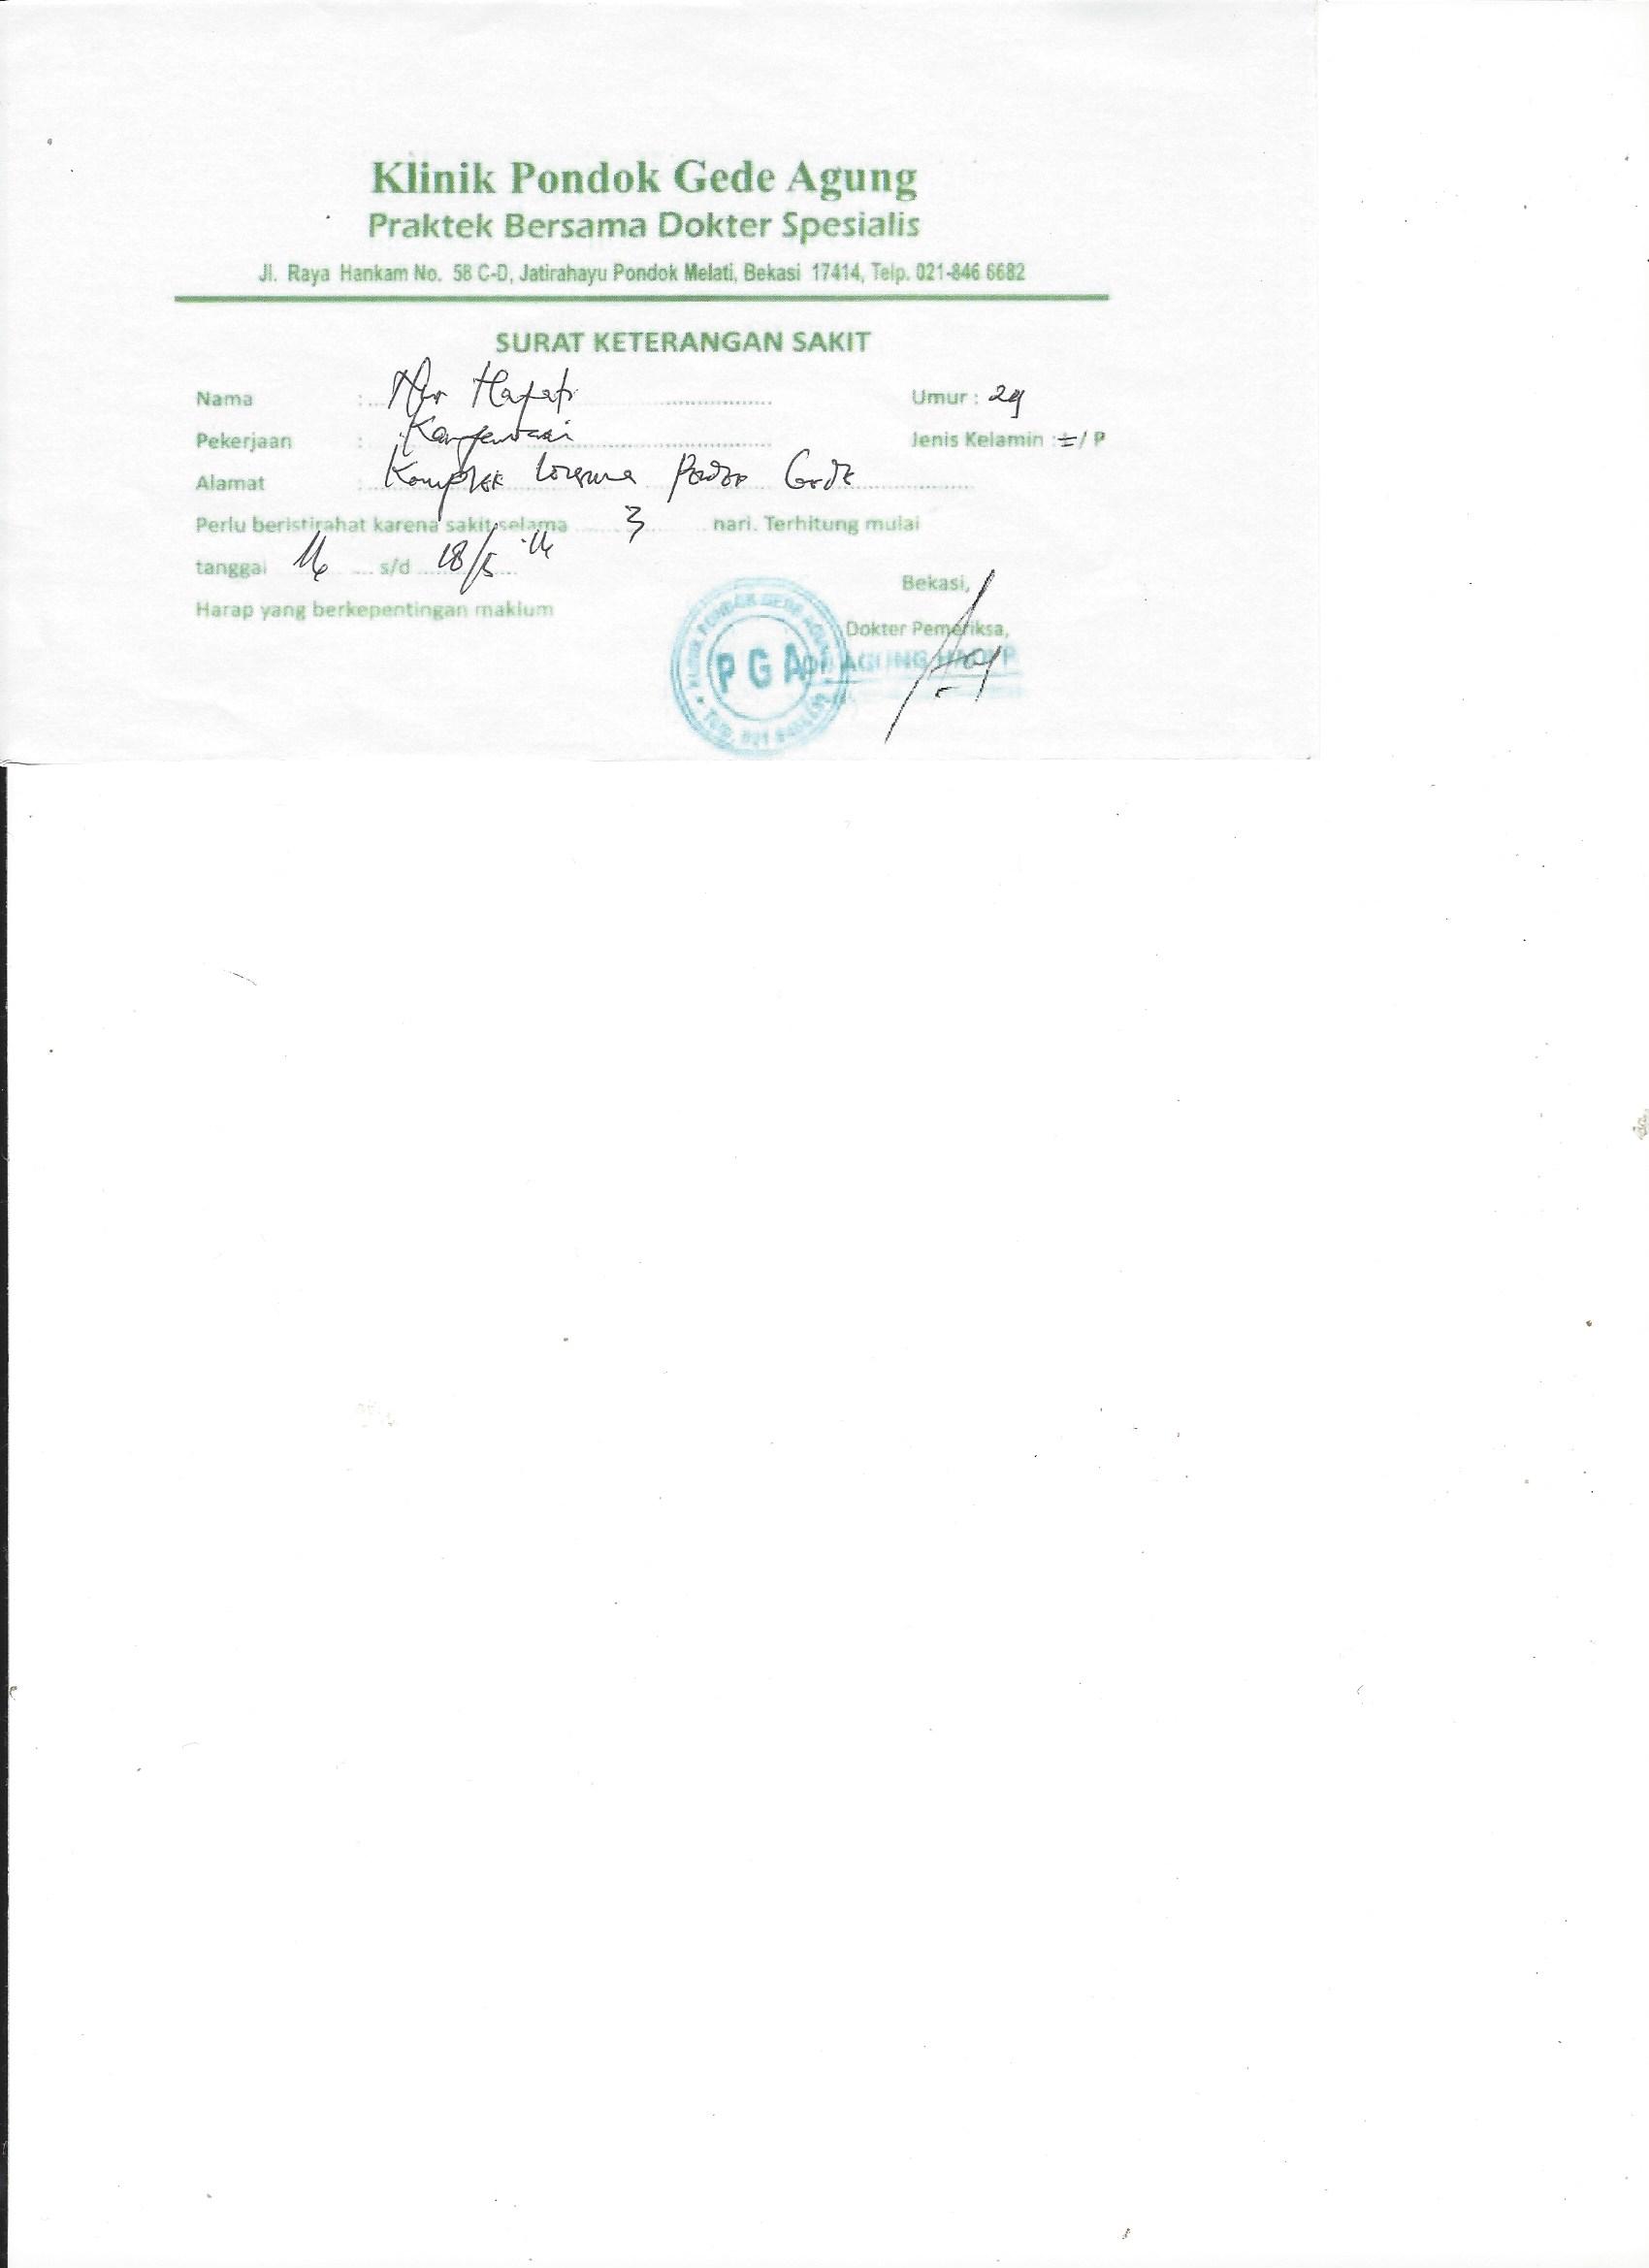 Klinik Pondok Gede Agung
Praktek Bersama Dokter Spesialis
Jl. Raya Hankam No. 58 C-D, Jatirahayu Pondok Melati, Bekasi 17414, Telp. 021-846 6682
SURAT KETERANGAN SAKIT
Nama : Nur Hayati Umur : 29
Pekerjaan : Karyawan Jenis Kelamin : L / P
Alamat : Komplek Pondok Gede
Perlu beristirahat karena sakit selama 3 hari. Terhitung mulai
tanggal 16 s/d 18/5 '16
Harap yang berkepentingan maklum
Bekasi,
Dokter Pemeriksa,
PGA
AGUNG
KLINIK PONDOK GEDE AGUNG